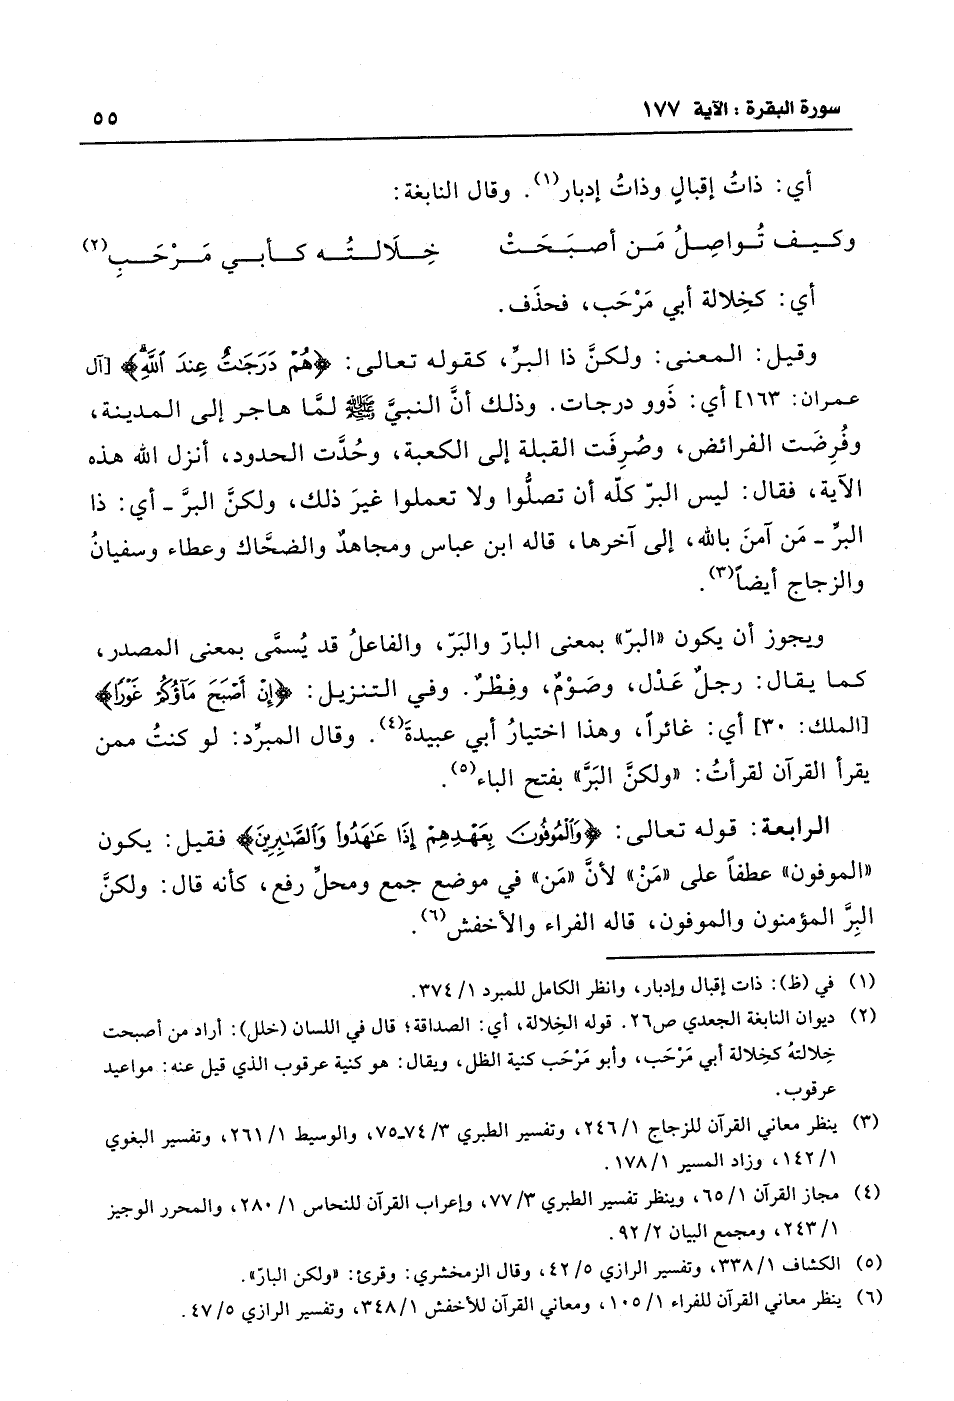 سورة البقرة : الآية ١٧٧
٥٥
أي: ذاتُ إقبالٍ وذاتُ إدبار(١). وقال النابغة:
وكـيـف تُـواصِـلُ مَـن أصـبَـحَـتْ    خِـلَالـتُـه كـأبـي مَـرْحَـبِ(٢)
أي: كخِلالة أبي مَرْحَب، فحذَف.
وقيل: المعنى: ولكنَّ ذا البرِّ، كقوله تعالى: ﴿هُمْ دَرَجَٰتٌ عِندَ ٱللَّهِۗ﴾ [آل
عمران: ١٦٣] أي: ذَوو درجات. وذلك أنَّ النبيَّ ﷺ لمَّا هاجر إلى المدينة،
وفُرِضَت الفرائض، وصُرِفَت القبلة إلى الكعبة، وحُدَّت الحدود، أنزل الله هذه
الآية، فقال: ليس البرّ كلّه أن تصلُّوا ولا تعملوا غيرَ ذلك، ولكنَّ البرَّ ـ أي: ذا
البرِّ ـ مَن آمنَ بالله، إلى آخرها، قاله ابن عباس ومجاهدٌ والضحَّاك وعطاء وسفيانُ
والزجاج أيضاً(٣).
ويجوز أن يكون «البرّ» بمعنى البارّ والبَرّ، والفاعلُ قد يُسمَّى بمعنى المصدر،
كما يقال: رجلٌ عَدْل، وصَوْمٌ، وفِطْرٌ. وفي التنزيل: ﴿إِنْ أَصْبَحَ مَآؤُكُمْ غَوْرًا﴾
[الملك: ٣٠] أي: غائراً، وهذا اختيارُ أبي عبيدةَ(٤). وقال المبرِّد: لو كنتُ ممن
يقرأ القرآن لقرأتُ: «ولكنَّ البَرَّ» بفتح الباء(٥).
الرابعة: قوله تعالى: ﴿وَٱلْمُوفُونَ بِعَهْدِهِمْ إِذَا عَٰهَدُوا۟ وَٱلصَّٰبِرِينَ﴾ فقيل: يكون
«الموفون» عطفاً على «مَنْ» لأنَّ «مَن» في موضع جمع ومحلِّ رفع، كأنه قال: ولكنَّ
البِرَّ المؤمنون والموفون، قاله الفراء والأخفش(٦).
(١) في (ظ): ذات إقبال وإدبار، وانظر الكامل للمبرد ١/ ٣٧٤.
(٢) ديوان النابغة الجعدي ص٢٦. قوله الخِلالة، أي: الصداقة؛ قال في اللسان (خلل): أراد من أصبحت
خِلالتهُ كخِلالة أبي مَرْحَب، وأبو مَرْحَب كنية الظل، ويقال: هو كنية عرقوب الذي قيل عنه: مواعيد
عرقوب.
(٣) ينظر معاني القرآن للزجاج ١/ ٢٤٦، وتفسير الطبري ٣/ ٧٤ـ٧٥، والوسيط ١/ ٢٦١، وتفسير البغوي
١/ ١٤٢، وزاد المسير ١/ ١٧٨.
(٤) مجاز القرآن ١/ ٦٥، وينظر تفسير الطبري ٣/ ٧٧، وإعراب القرآن للنحاس ١/ ٢٨٠، والمحرر الوجيز
١/ ٢٤٣، ومجمع البيان ٢/ ٩٢.
(٥) الكشاف ١/ ٣٣٨، وتفسير الرازي ٥/ ٤٢، وقال الزمخشري: وقرئ: «ولكن البارّ».
(٦) ينظر معاني القرآن للفراء ١/ ١٠٥، ومعاني القرآن للأخفش ١/ ٣٤٨، وتفسير الرازي ٥/ ٤٧.